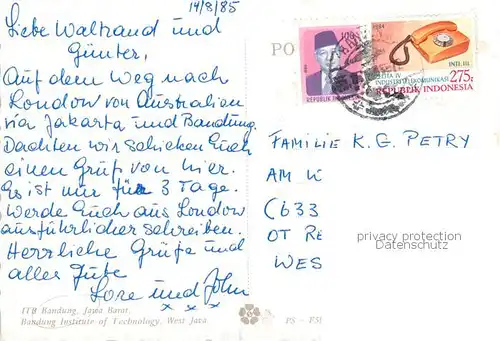 14/8/85
Liebe Waltraud und
Günter,
Auf dem Weg nach
London von Australien
via Jakarta und Bandung.
Dachten wir schicken Euch
einen Gruß von hier.
Es ist nur für 3 Tage.
Werde Euch aus London
ausführlicher schreiben.
Herrliche Grüße und
alles Gute
Lore und John
x x x
ITB Bandung, Jawa Barat.
Bandung Institute of Technology, West Java
PO
1984
INTI, III
PELITA IV
INDUSTRI TELEKOMUNIKASI
275r
REPUBLIK INDONESIA
REPUBLIK
FAMILIE K. G. PETRY
AM
C633
OT RE
WES
privacy protection
Datenschutz
PS -